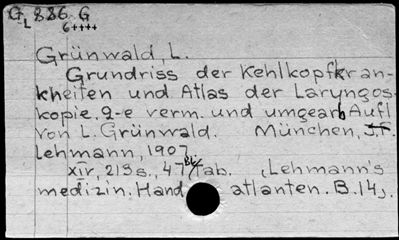 G L 886 G
6++++
Grünwald, L.
Grundriss der Kehlkopfkran-
kheiten und Atlas der Laryngos-
kopie. 2-e verm. und umgearb Aufl
von L. Grünwald. München, J.F.
Lehmann, 1907
XIV, 213 s., 47 Bl/Tab. (Lehmann's
medizin. Hand atlanten. B. 14).